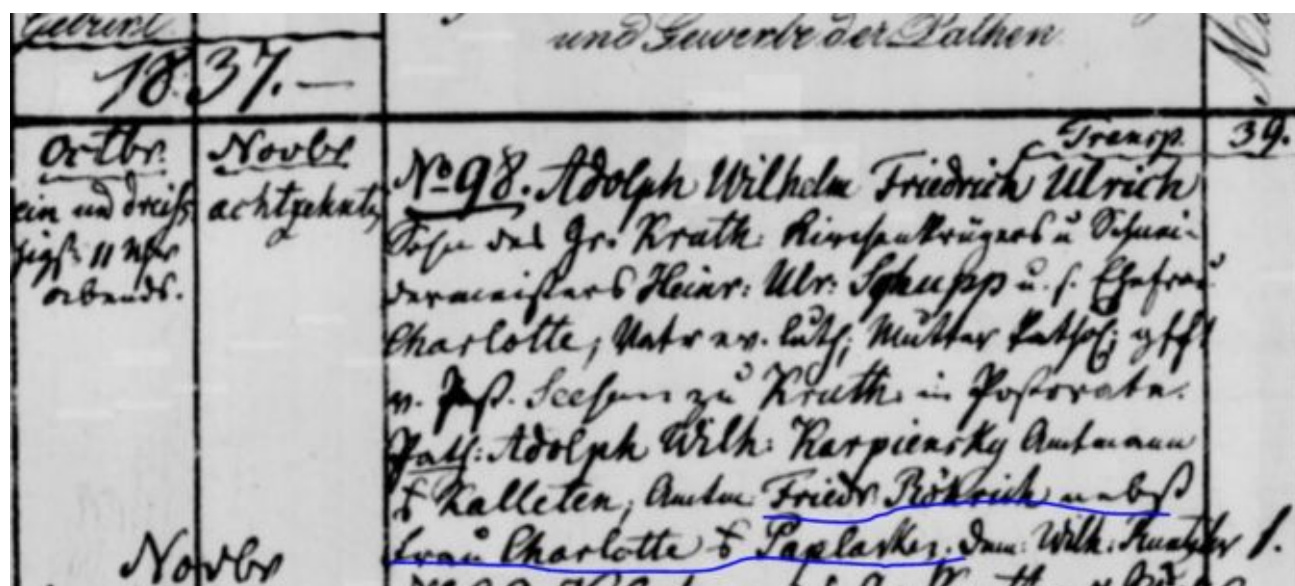 Geburt.
und Gewerbe der Pathen
1837.—
Transp. 39.
Octbr.
ein und dreiß
zigst 11 Uhr
abends.
Novbr
achtzehnten
No 98. Adolph Wilhelm Friedrich Ulrich
Sohn des Gr: Kruth: Kirchenkrügers u Schnei-
dermeisters Heinr: Ulr: Schupp u. s. Ehefrau
Charlotte; Vater ev. luth; Mutter kathol;
v. Past. zu Kruth: in Pastorate.
Path: Adolph Wilh: Karpiensky Amtmann
Kalleten; Amtm: Friedr Röhrich nebst
Frau Charlotte Paplacken. Wilh: 1.
Novbr